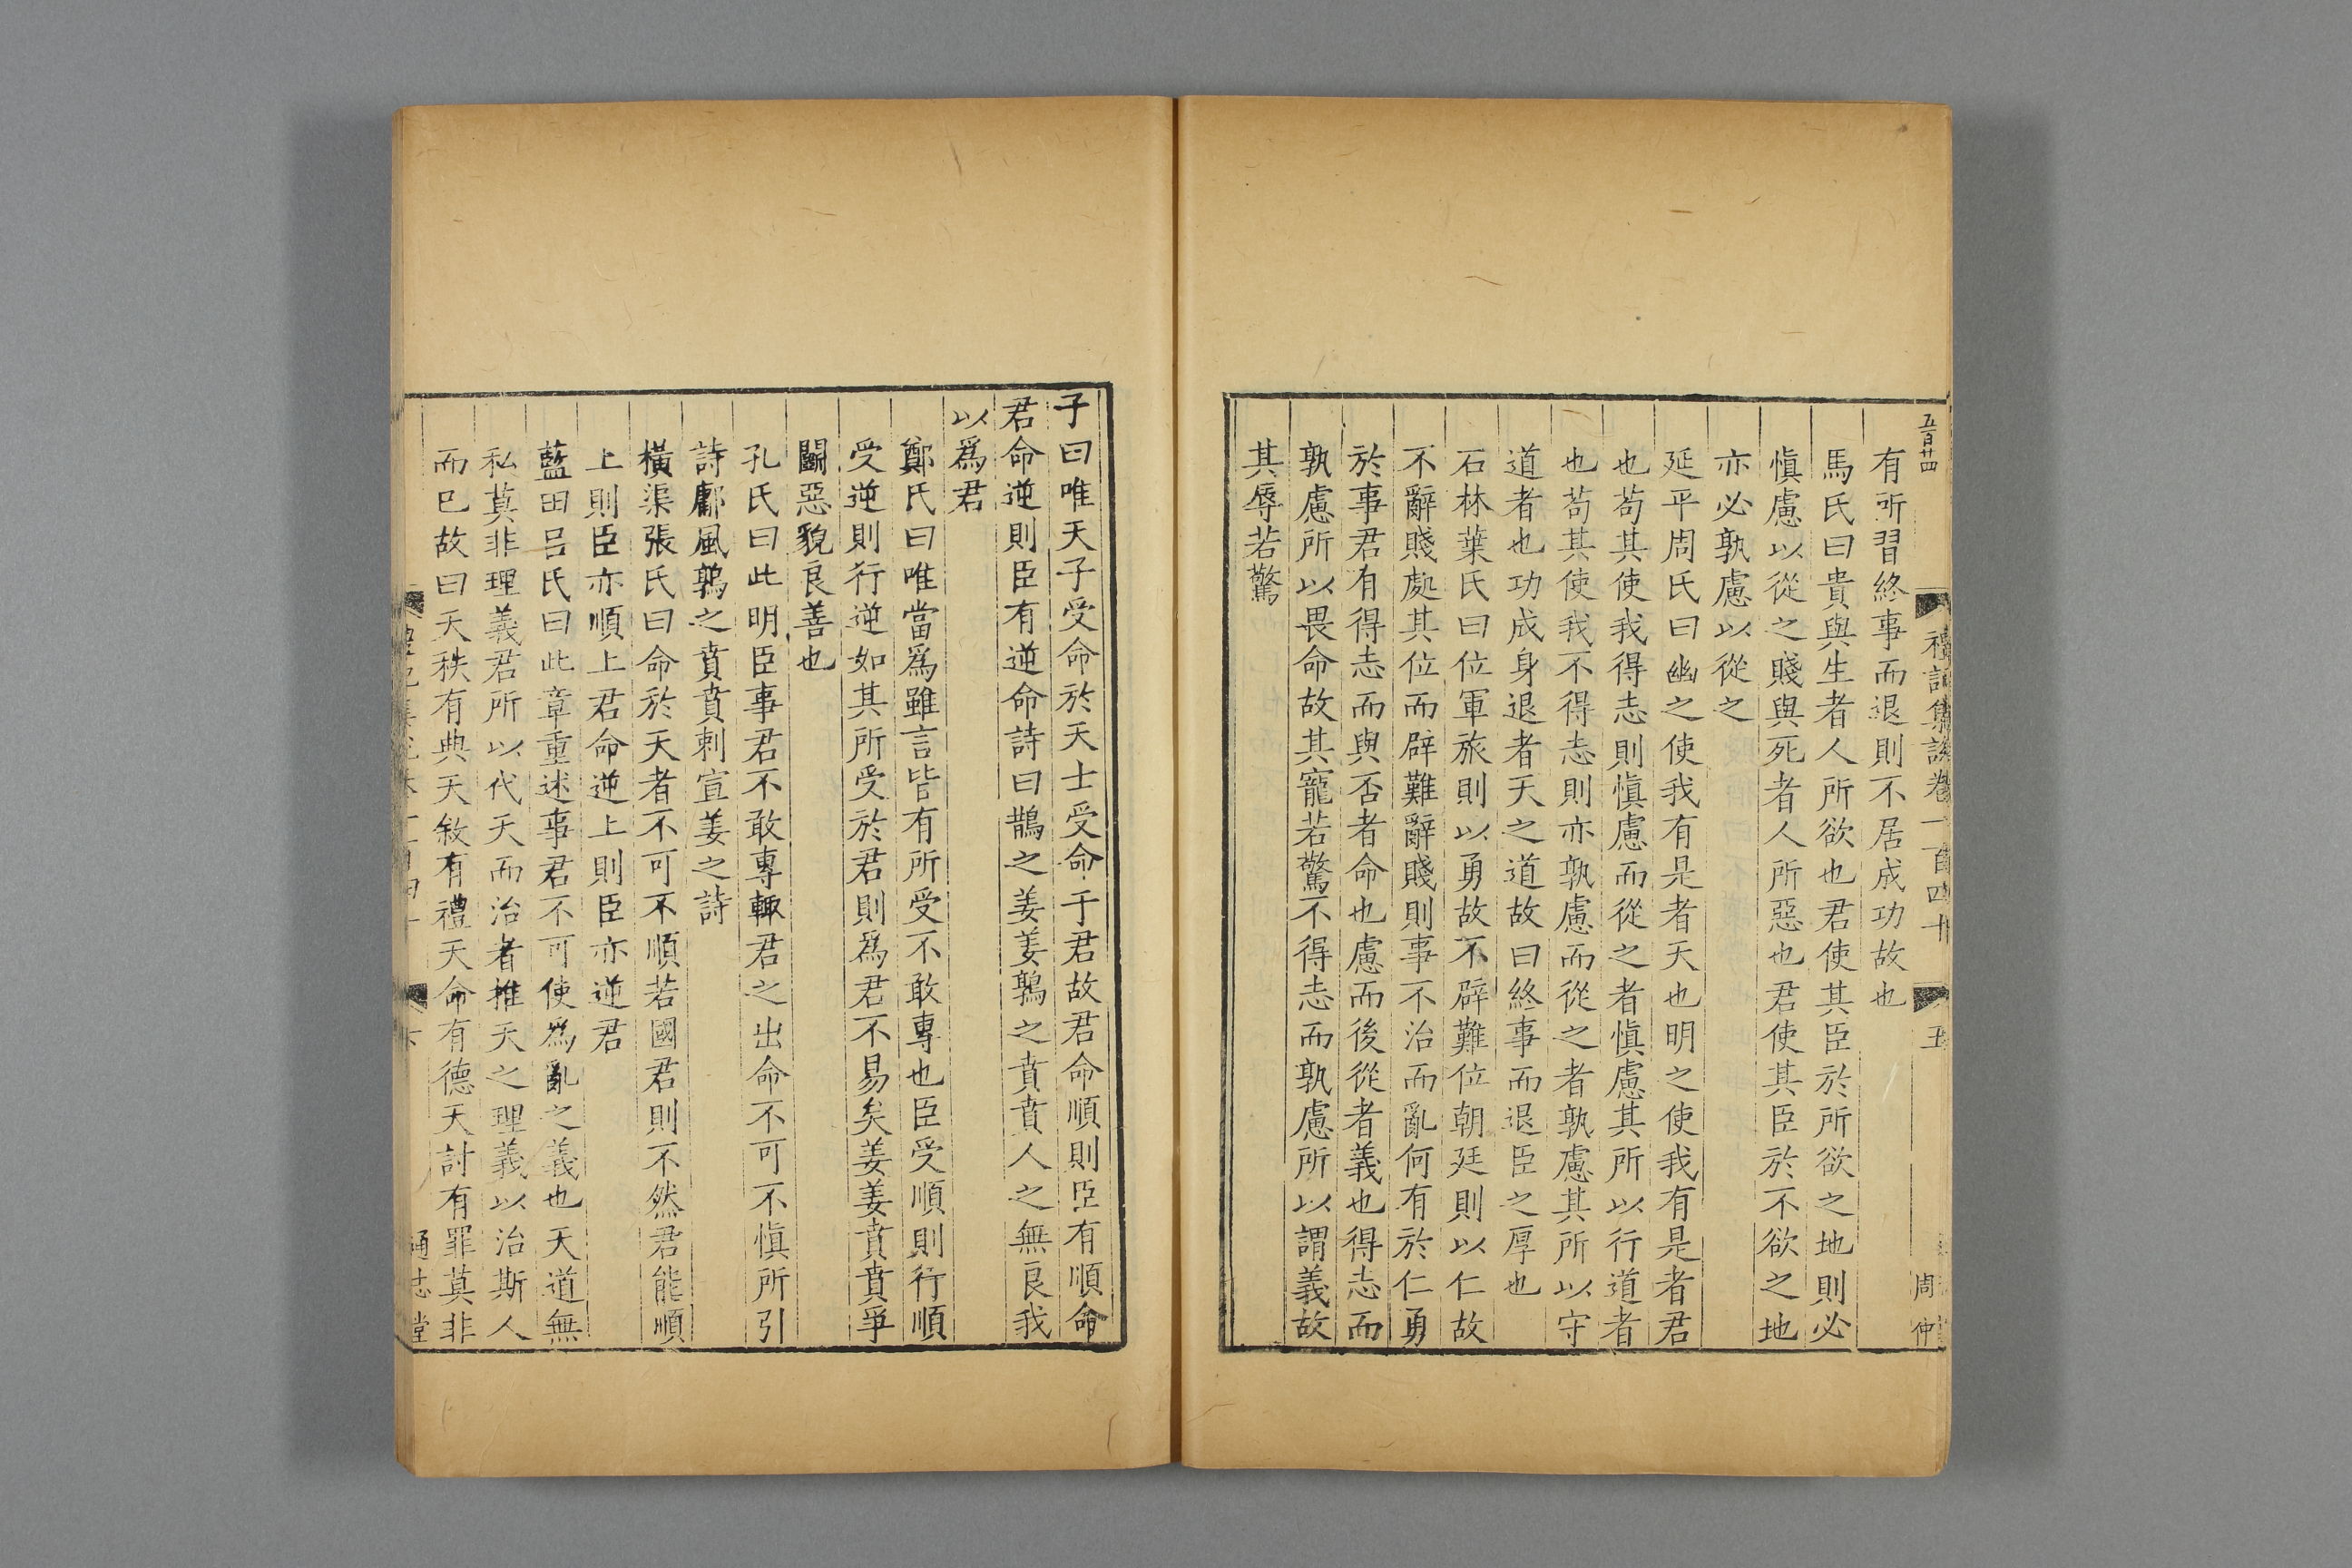 五百廿四
禮記集說卷一百四十
五
周仲
有所習終事而退則不居成功故也
馬氏曰貴與生者人所欲也君使其臣於所欲之地則必
愼慮以從之賤與死者人所惡也君使其臣於不欲之地
亦必孰慮以從之
延平周氏曰幽之使我有是者天也明之使我有是者君
也苟其使我得志則愼慮而從之者愼慮其所以行道者
也苟其使我不得志則亦孰慮而從之者孰慮其所以守
道者也功成身退者天之道故曰終事而退臣之厚也
石林葉氏曰位軍旅則以勇故不辟難位朝廷則以仁故
不辭賤處其位而辟難辭賤則事不治而亂何有於仁勇
於事君有得志而與否者命也慮而後從者義也得志而
孰慮所以畏命故其寵若驚不得志而孰慮所以謂義故
其辱若驚
子曰唯天子受命於天士受命于君故君命順則臣有順命
君命逆則臣有逆命詩曰鵲之姜姜鶉之賁賁人之無良我
以爲君
鄭氏曰唯當爲雖言皆有所受不敢專也臣受順則行順
受逆則行逆如其所受於君則爲君不易矣姜姜賁賁爭
鬭惡貌良善也
孔氏曰此明臣事君不敢專輒君之出命不可不愼所引
詩鄘風鶉之賁賁刺宣姜之詩
橫渠張氏曰命於天者不可不順若國君則不然君能順
上則臣亦順上君命逆上則臣亦逆君
藍田呂氏曰此章重述事君不可使爲亂之義也天道無
私莫非理義君所以代天而治者推天之理義以治斯人
而巳故曰天秩有典天敘有禮天命有德天討有罪莫非
通志堂